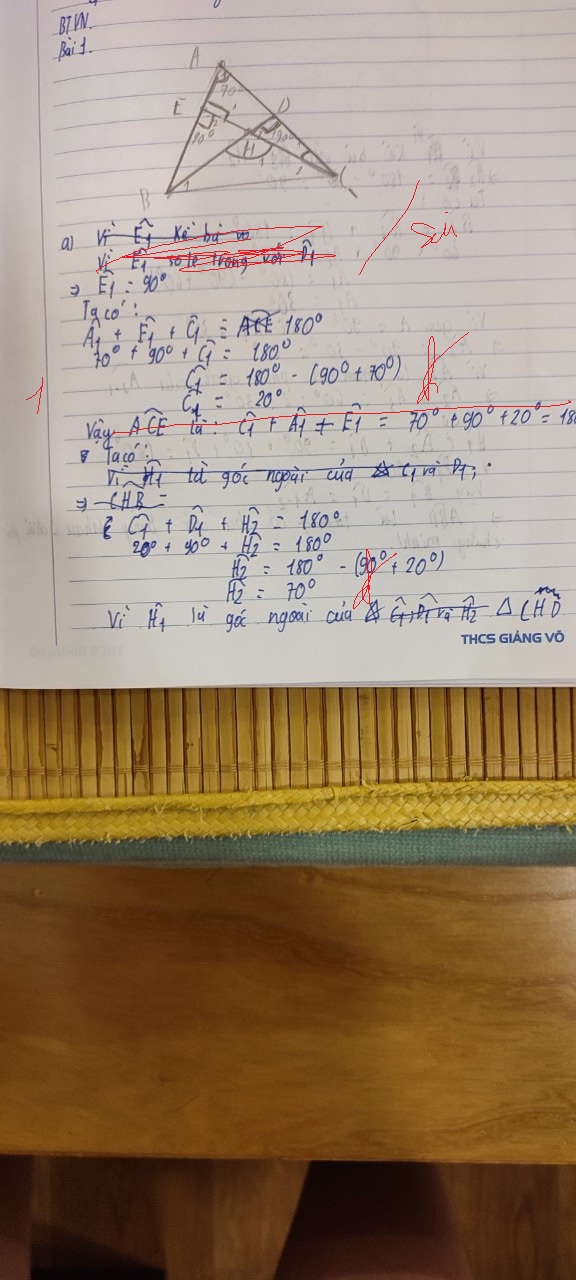 BTVN.
Bài 1.
A
70°
E
D
90°
90°
H
B
C
a) Vì Ê1 kề bù
Vì Ê1 so le trong với D̂1
Sai
⇒ Ê1 = 90°
Ta có:
Â1 + Ê1 + Ĉ1 = ACE 180°
70° + 90° + Ĉ1 = 180°
Ĉ1 = 180° - (90° + 70°)
1
Ĉ1 = 20°
Vậy AĈE là: Ĉ1 + Â1 + Ê1 = 70° + 90° + 20° = 18
Ta có:
Vì Ĥ1 là góc ngoài của Δ C1 và D1;
⇒ CHB =
Ĉ1 + D̂1 + Ĥ2 = 180°
20° + 90° + Ĥ2 = 180°
Ĥ2 = 180° - (90° + 20°)
Ĥ2 = 70°
Vì Ĥ1 là góc ngoài của Δ Ĉ1, D̂1 và Ĥ2 Δ CHD
THCS GIẢNG VÕ